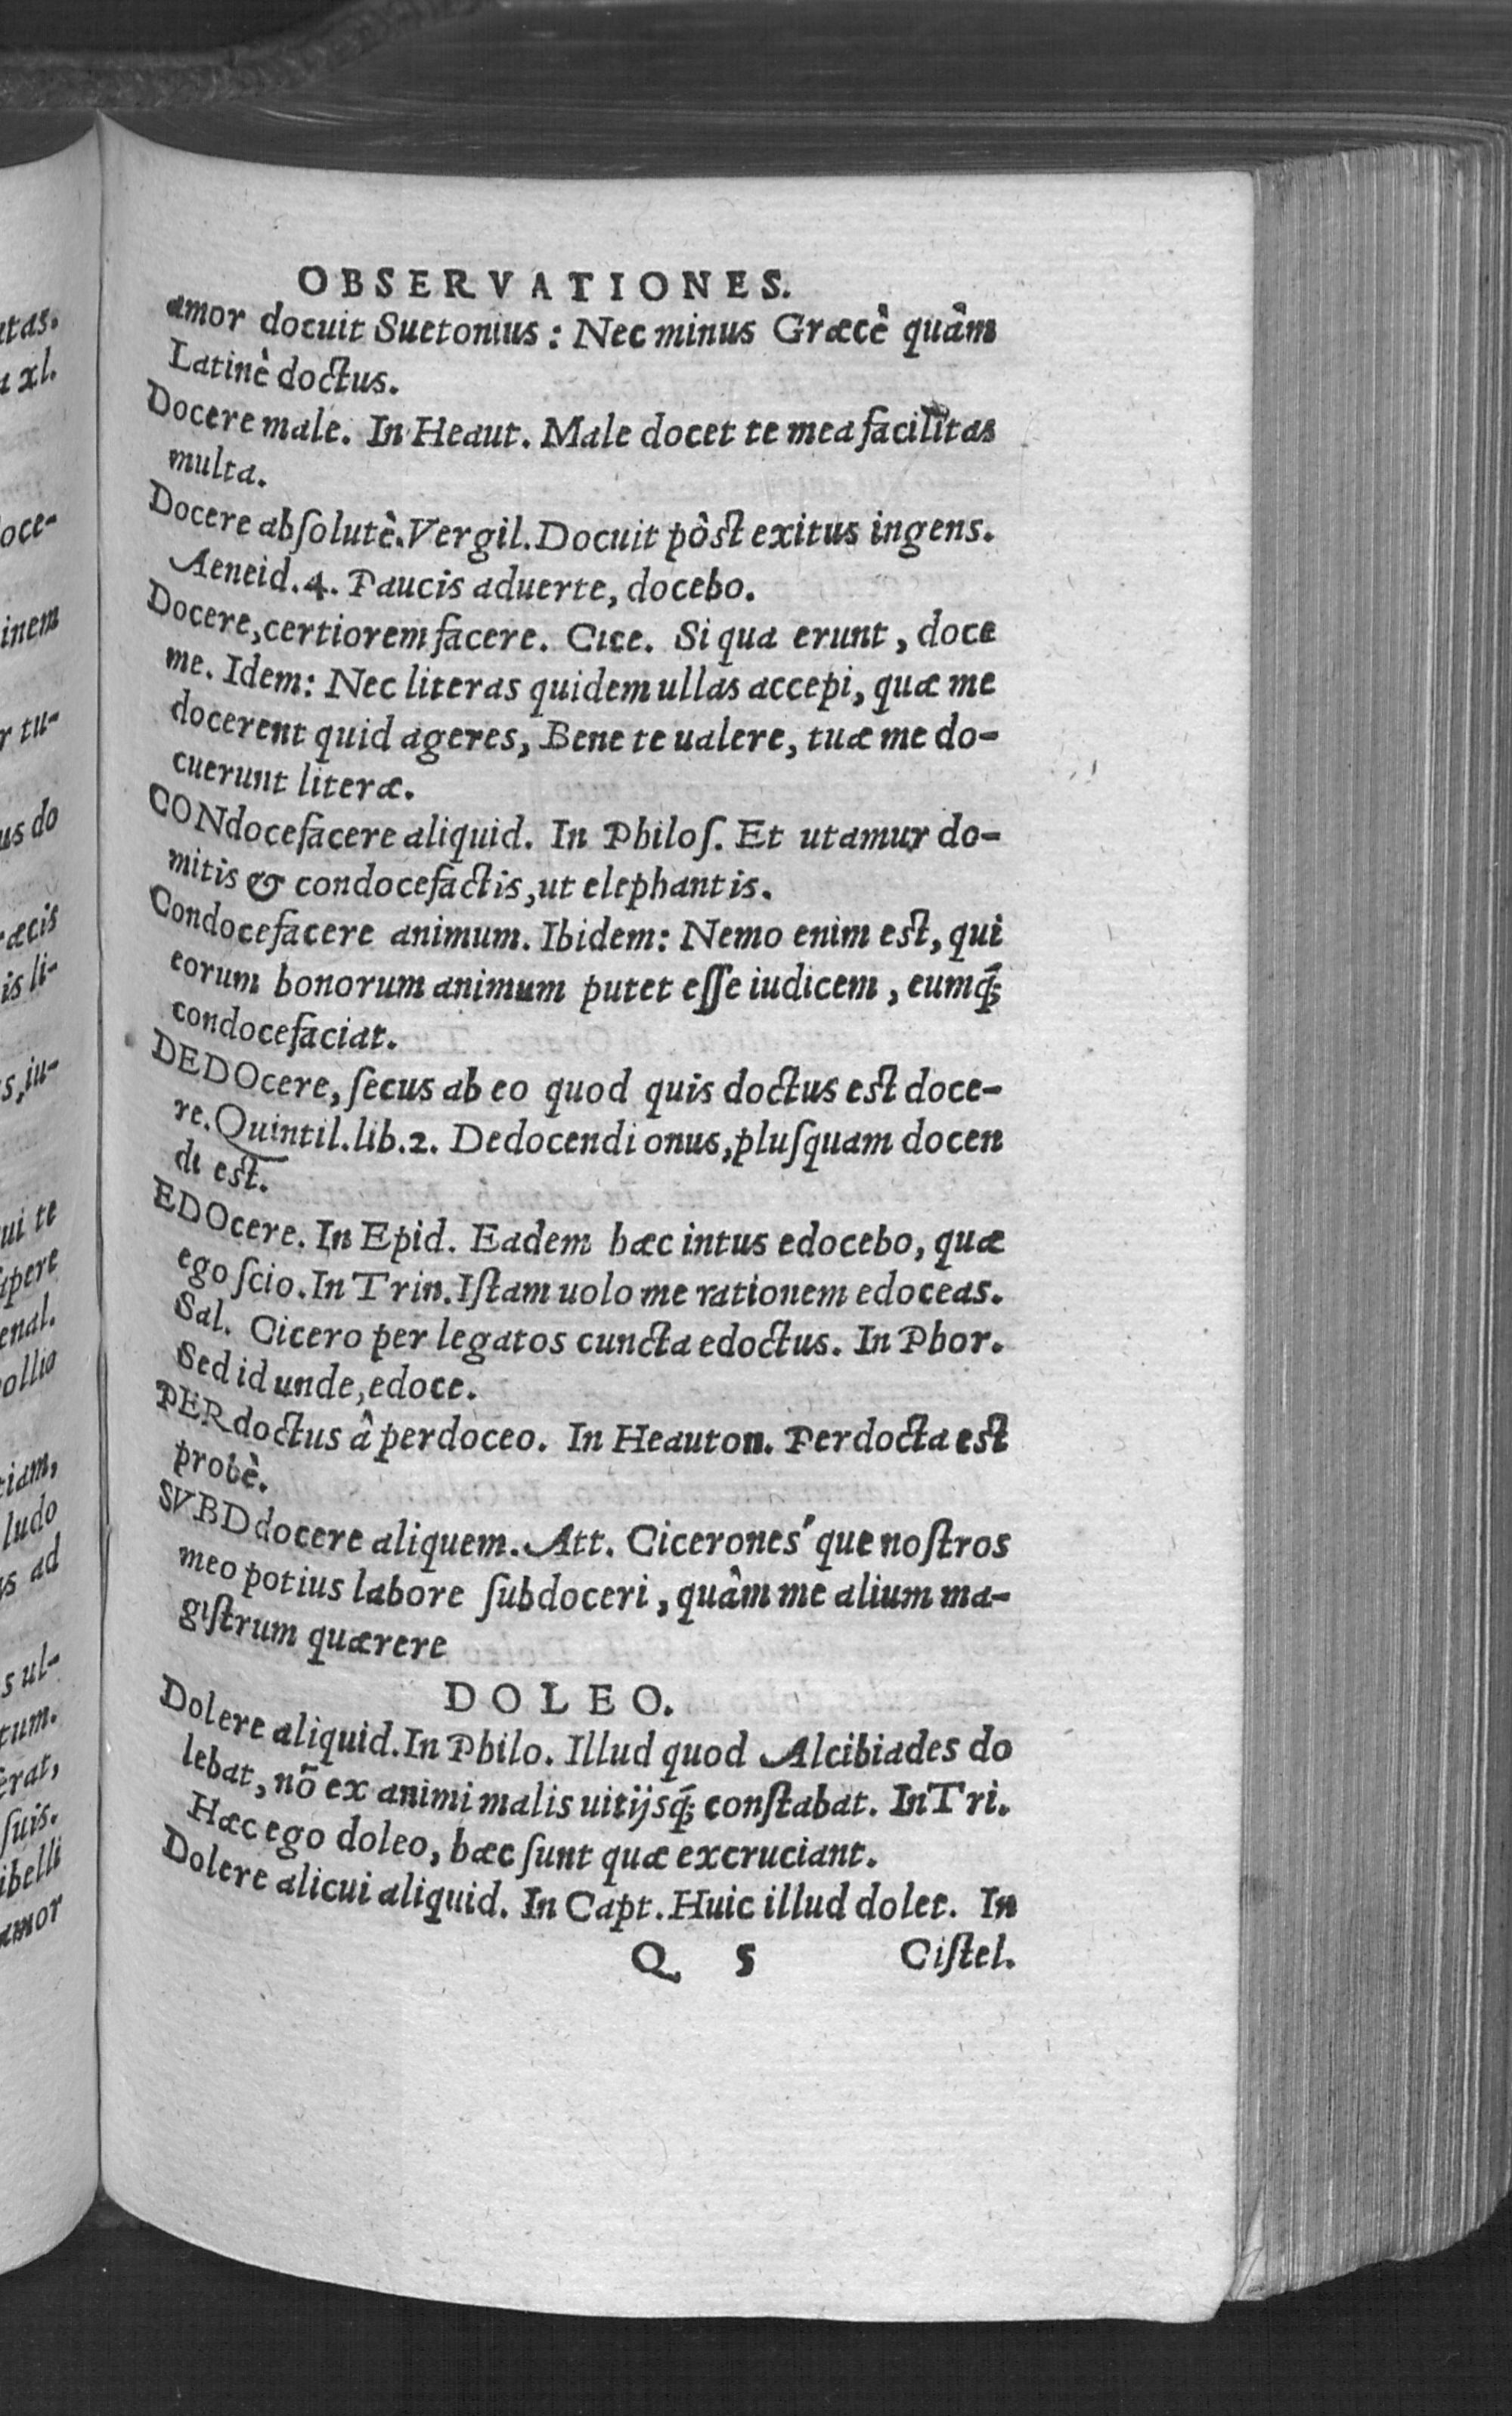 OBSERVATIONES.
amor docuit Suetonius : Nec minus Græcè quâm
Latinè doctus.
Docere male. In Heaut. Male docet te mea facilitas
multa.
Docere abſolutè. Vergil. Docuit pôst exitus ingens.
Aeneid. 4. Paucis aduerte, docebo.
Docere, certiorem facere. Cice. Si qua erunt, doce
me. Idem: Nec literas quidem ullas accepi, quæ me
docerent quid ageres, Bene te ualere, tuæ me do-
cuerunt literæ.
CONdocefacere aliquid. In Philoſ. Et utamur do-
mitis & condocefactis, ut elephantis.
Condocefacere animum. Ibidem: Nemo enim est, qui
eorum bonorum animum putet eſſe iudicem, eumq́;
condocefaciat.
DEDOcere, ſecus ab eo quod quis doctus est doce-
re. Quintil. lib. 2. Dedocendi onus, pluſquam docen
di est.
EDOcere. In Epid. Eadem hæc intus edocebo, quæ
ego ſcio. In Trin. Iſtam uolo me rationem edoceas.
Sal. Cicero per legatos cuncta edoctus. In Phor.
Sed id unde, edoce.
PERdoctus â perdoceo. In Heauton. Perdocta est
probè.
SVBDdocere aliquem. Att. Cicerones'que noſtros
meo potius labore ſubdoceri, quâm me alium ma-
giſtrum quærere
DOLEO.
Dolere aliquid. In Philo. Illud quod Alcibiades do
lebat, nō ex animi malis uitijsq́; conſtabat. In Tri.
Hæc ego doleo, hæc ſunt quæ excruciant.
Dolere alicui aliquid. In Capt. Huic illud dolet. In
Q 5 Ciſtel.